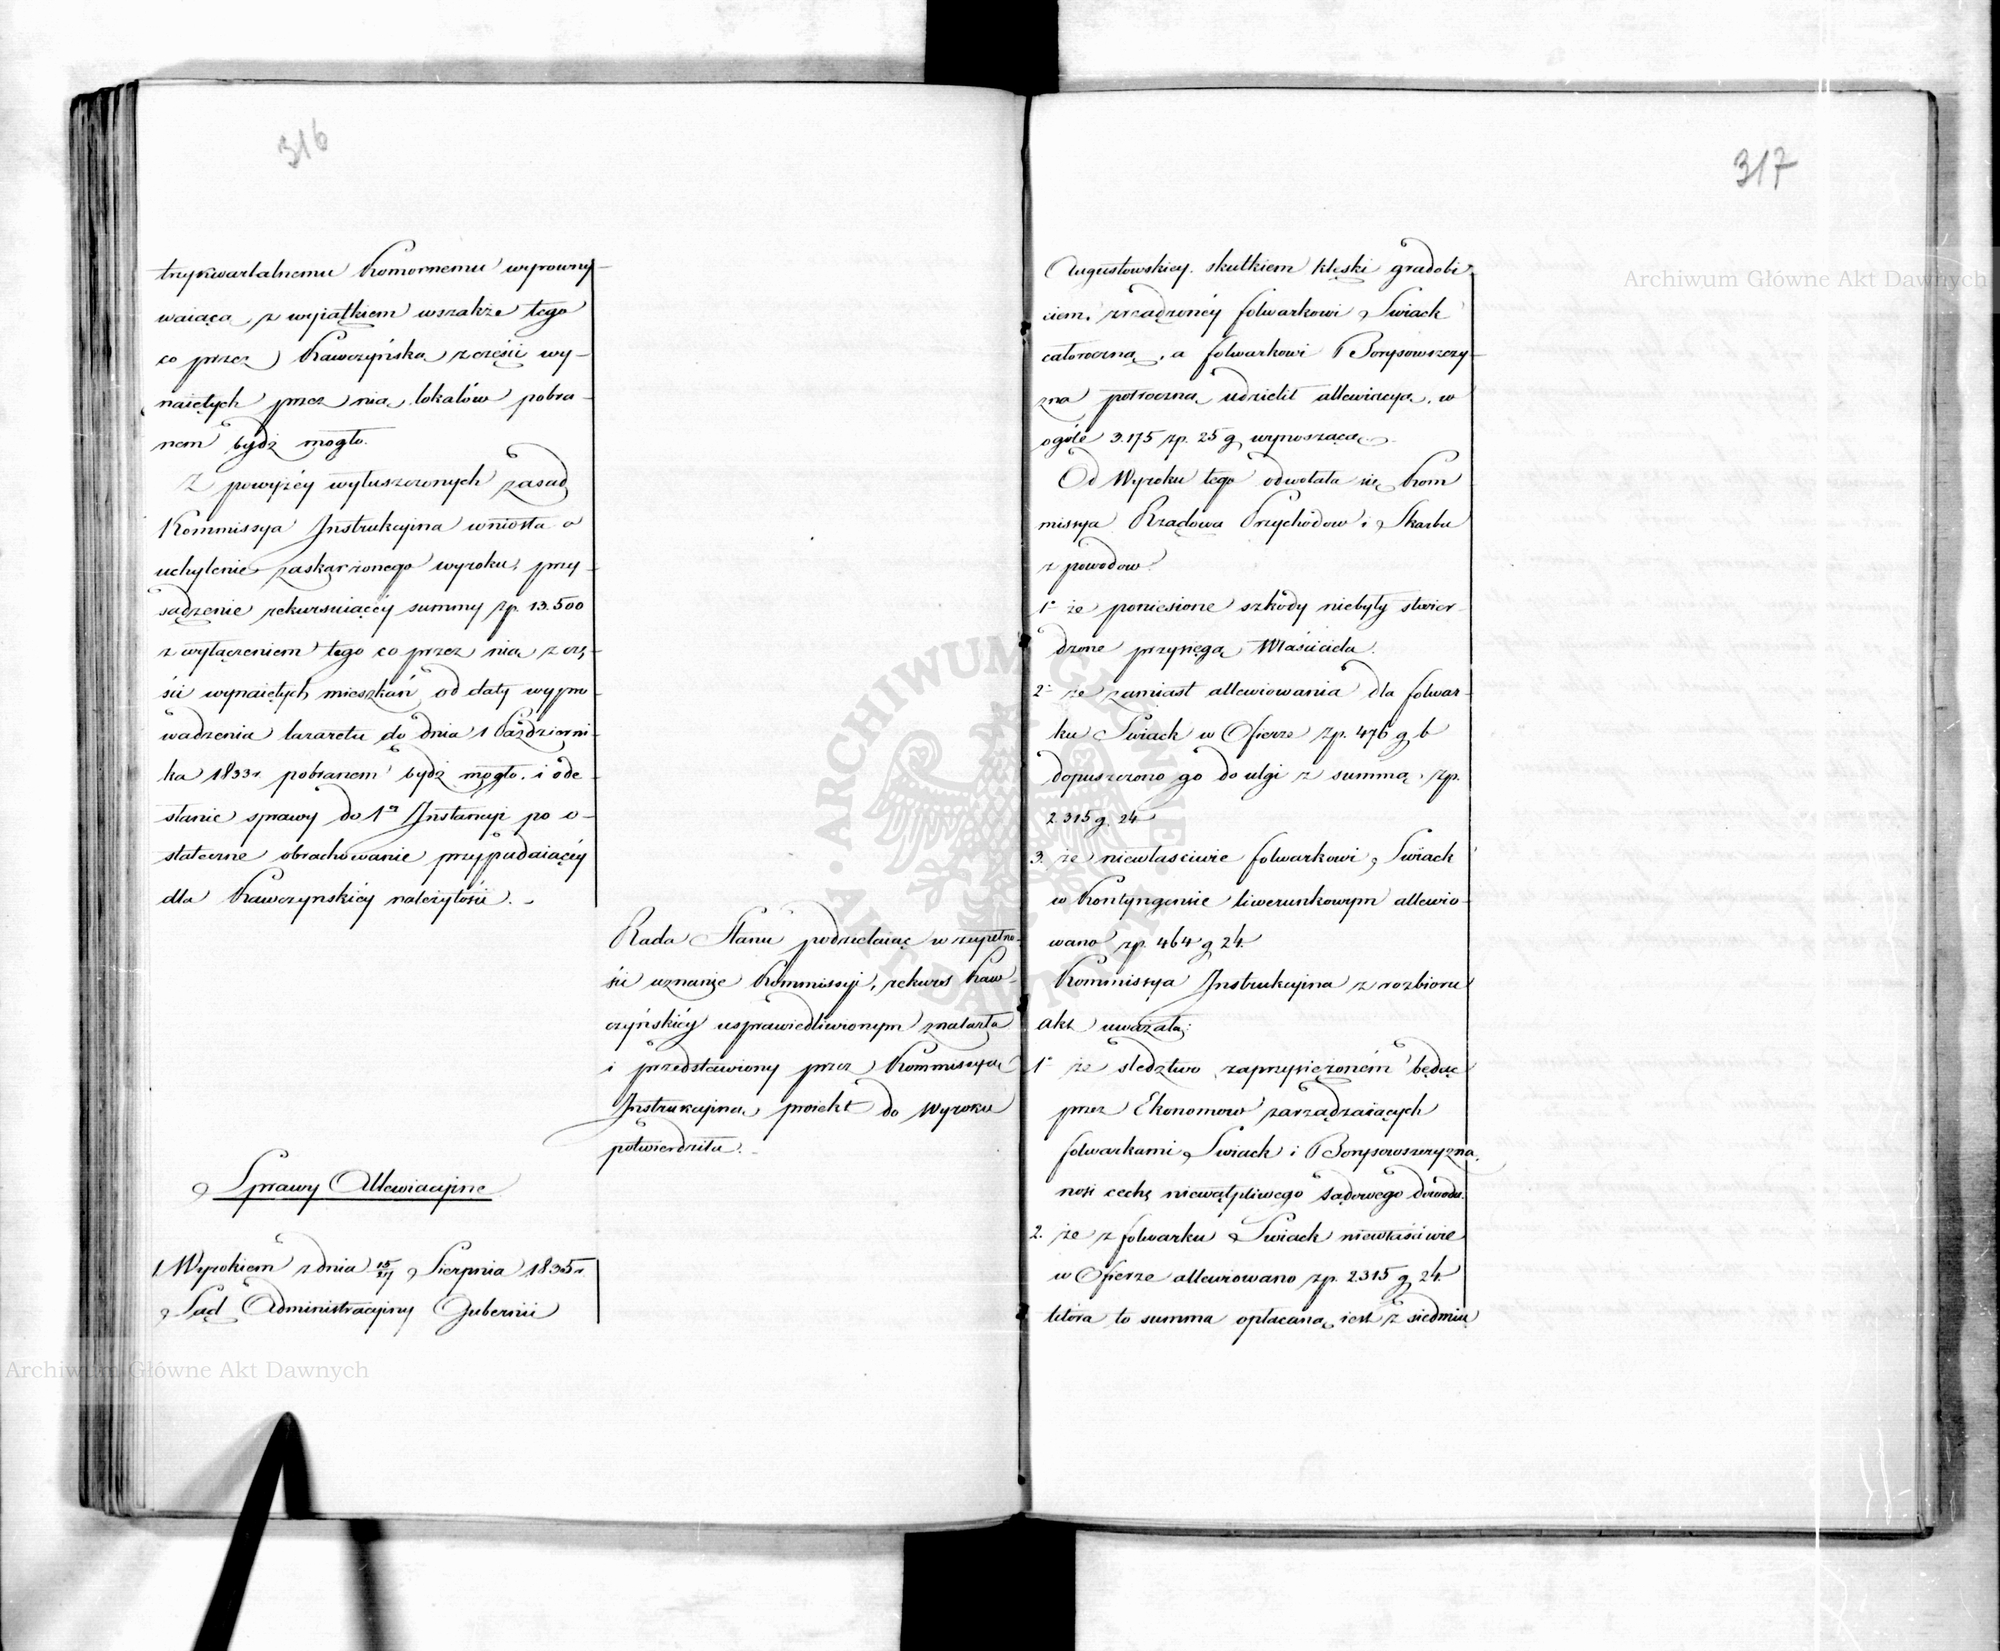 316
trzykwartalnemu Komornemu wyrowny-
waiąca, z wyiątkiem wszakże tego
co przez Kawczyńską z części wy-
naiętych przez nią lokalów pobra-
nem bydź mogło.
Z powyżéy wyłuszczonych zasad
Kommissya Instrukcyina wniosła o
uchylenie zaskarżonego wyroku, przy-
sądzenie rekursuiącéy summy zp. 13.500
z wyłączeniem tego co przez nią z czę-
ści wynaiętych mieszkań od daty wypro-
wadzenia lazaretu do dnia 1 Październi-
ka 1833 r. pobranem bydź mogło, i ode-
słanie sprawy do 1ey Instancyi po o-
stateczne obrachowanie przypadaiącéy
dla Kawczynskiéy należytości. -
Rada Stanu podzielaiąc w zupełno-
ści uznanie Kommissyi, rekurs Kaw-
czyńskiéy usprawiedliwionym znalazła
i przedstawiony przez Kommissyą
Instrukcyiną proiekt do Wyroku
potwierdziła.
Sprawy Allewiacyjne
1. Wyrokiem z dnia 15/27 Sierpnia 1835 r.
Sąd Administracyiny Gubernii
317
Augustowskiey, skutkiem klęski gradobi
ciem, zrządzonéy folwarkowi Swiack
całoroczną, a folwarkowi Borysowszczy-
zna półroczną udzielił allewiacyą, w
ogóle 3.175 zp. 25 g. wynoszącą.
Od Wyroku tego odwołała się Kom
missya Rządowa Przychodow i Skarbu
z powodow:
1° że poniesione szkody niebyły stwier-
dzone przysięgą Właściciela.
2° że zamiast allewiowania dla folwar-
ku Swiack w Ofierze zp. 476 g 6
dopuszczono go do ulgi z summą, zp.
2.315 g. 24
3. że niewłaściwie folwarkowi Swiack
w Kontyngensie liwerunkowym allewio-
wano zp. 464 g 24.
Kommissya Instrukcyina z rozbioru
akt uważała:
1° że sledztwo zaprzysiężoném będąc
przez Ekonomow zarządzaiących
folwarkami Swiack i Borysowszczyzna,
nosi cechę niewątpliwego sądowego dowodu.
2. że z folwarku Swiack niewłaściwie
w Ofierze allewiowano zp. 2315 g 24.
która to summa opłacaną iest z siedmiu
Archiwum Główne Akt Dawnych
Archiwum Główne Akt Dawnych
ARCHIWUM GŁÓWNE AKT DAWNYCH